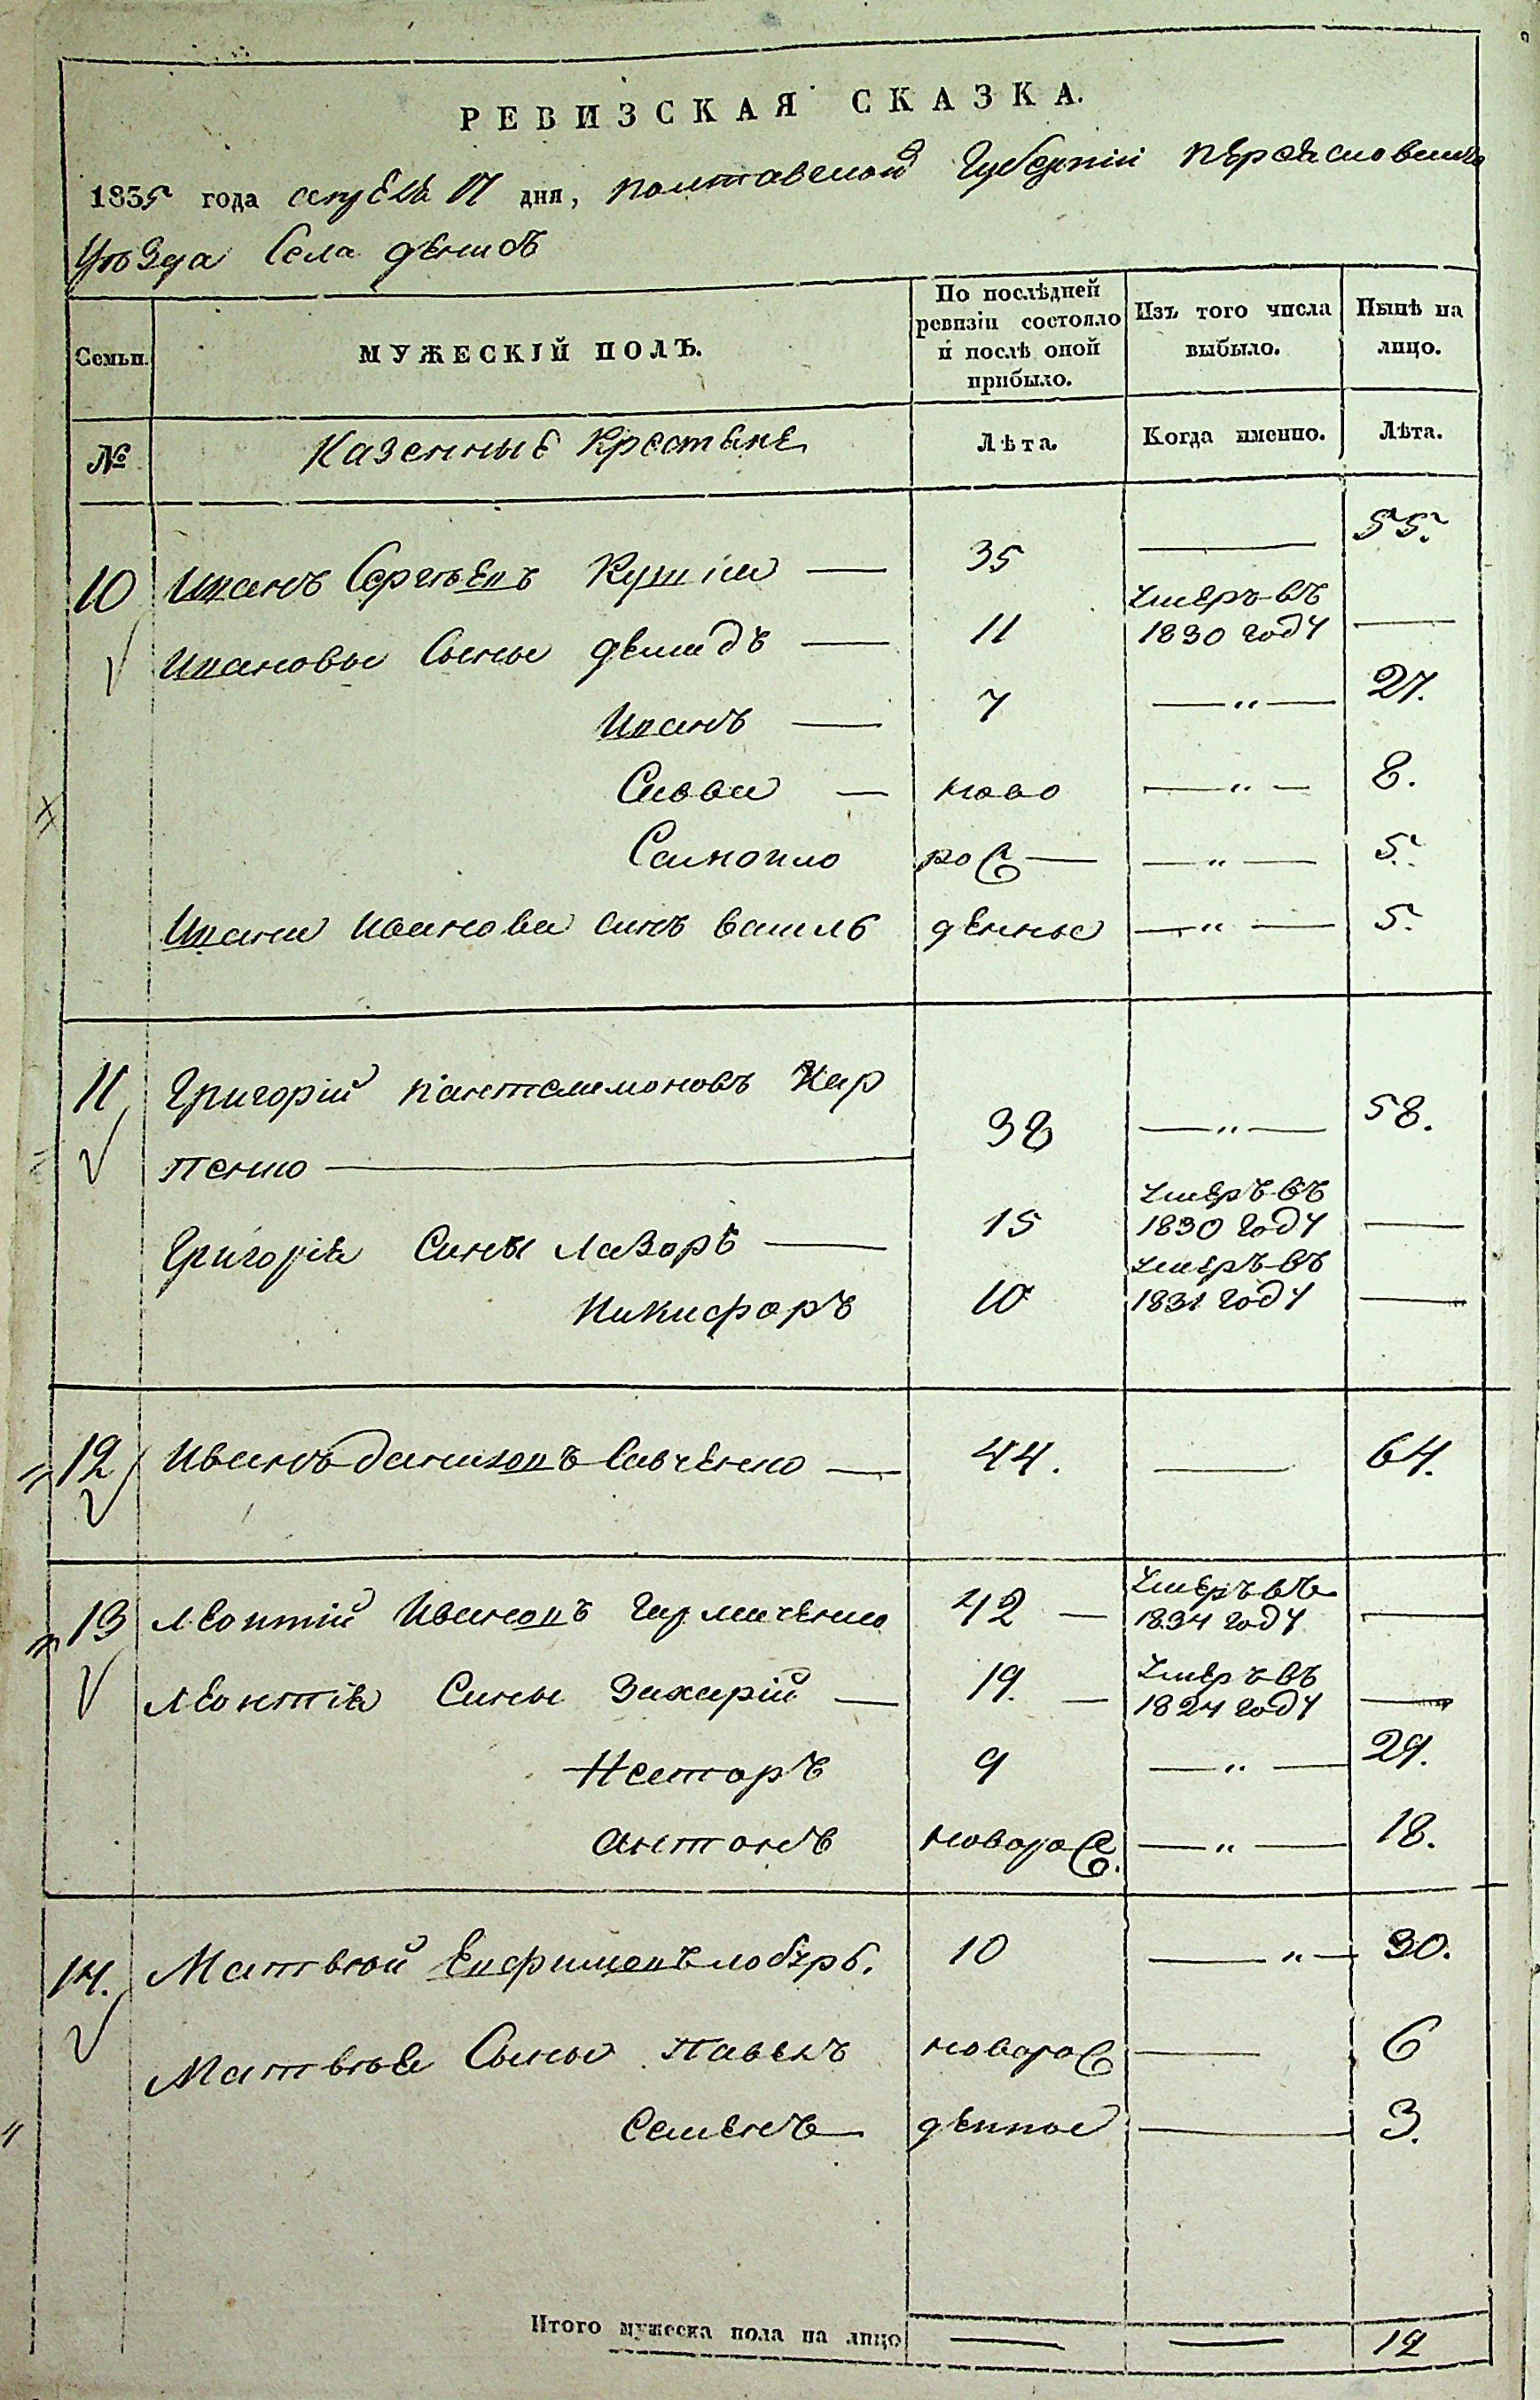 РЕВИЗСКАЯ СКАЗКА.
1835 года дня, полтавской Губернiи переясловскаго
Уѣзда Села денисъ
Семьи. МУЖЕСКІЙ ПОЛЪ. По послѣдней ревизіи состояло и послѣ оной прибыло. Изъ того числа выбыло. Нынѣ на лицо.
№ Казенные Крестяне Лѣта. Когда именно. Лѣта.
10 Иванъ Сергѣевъ — 35 — 55.
Ивановы Сыны демидъ — 11 умеръ въ 1830 году —
Иванъ — 7 — „ — 27.
Савва — ново — „ — 8.
Самоило рож — — „ — 5.
Ивана Иванова синъ василь денные — „ — 5.
11 Григорій пантелимоновъ Кар
пенко — 38 — „ — 58.
Григорія Сины Лазоръ — 15 умеръ въ 1830 году —
Никифоръ 10 умеръ въ 1831 году —
12 Иванъ даниловъ Савченко — 44. — 64.
13 Леонтій Ивановъ 42 — умеръ въ 1834 году —
Леонтія Сины Захарій — 19. — умеръ въ 1824 году —
Несторъ 9 — „ — 29.
Антонъ новорож. — „ — 18.
14. Матвей Евфимовъ лобурь. 10 — „ — 30.
Матвѣя Сыны Павелъ новорож — 6
Семенъ — денные — 3.
Итого мужеска пола на лицо — — 12